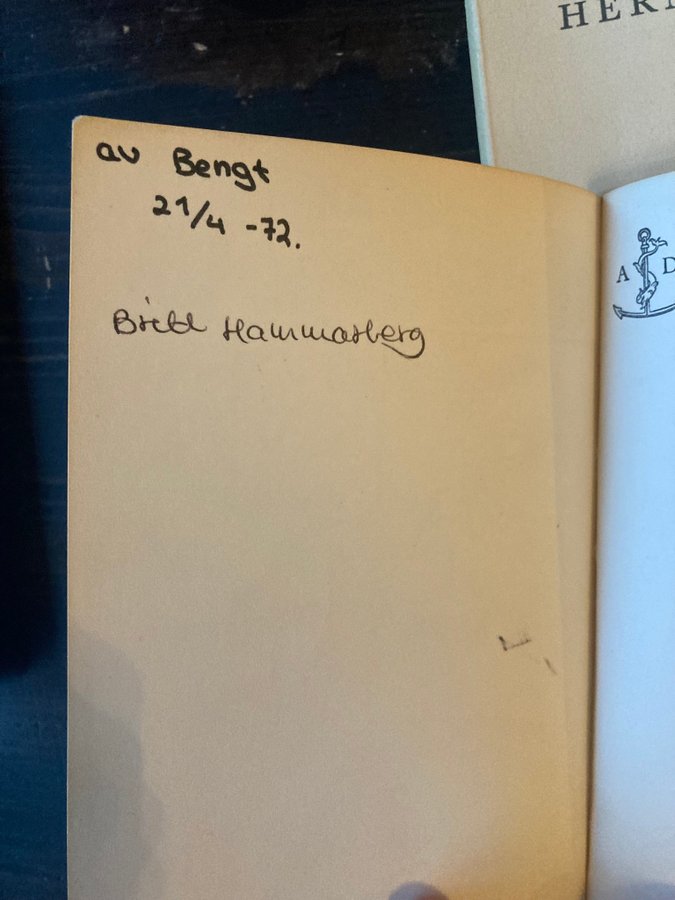 HER
av Bengt
21/4 -72.
Britt Hammarberg
A D